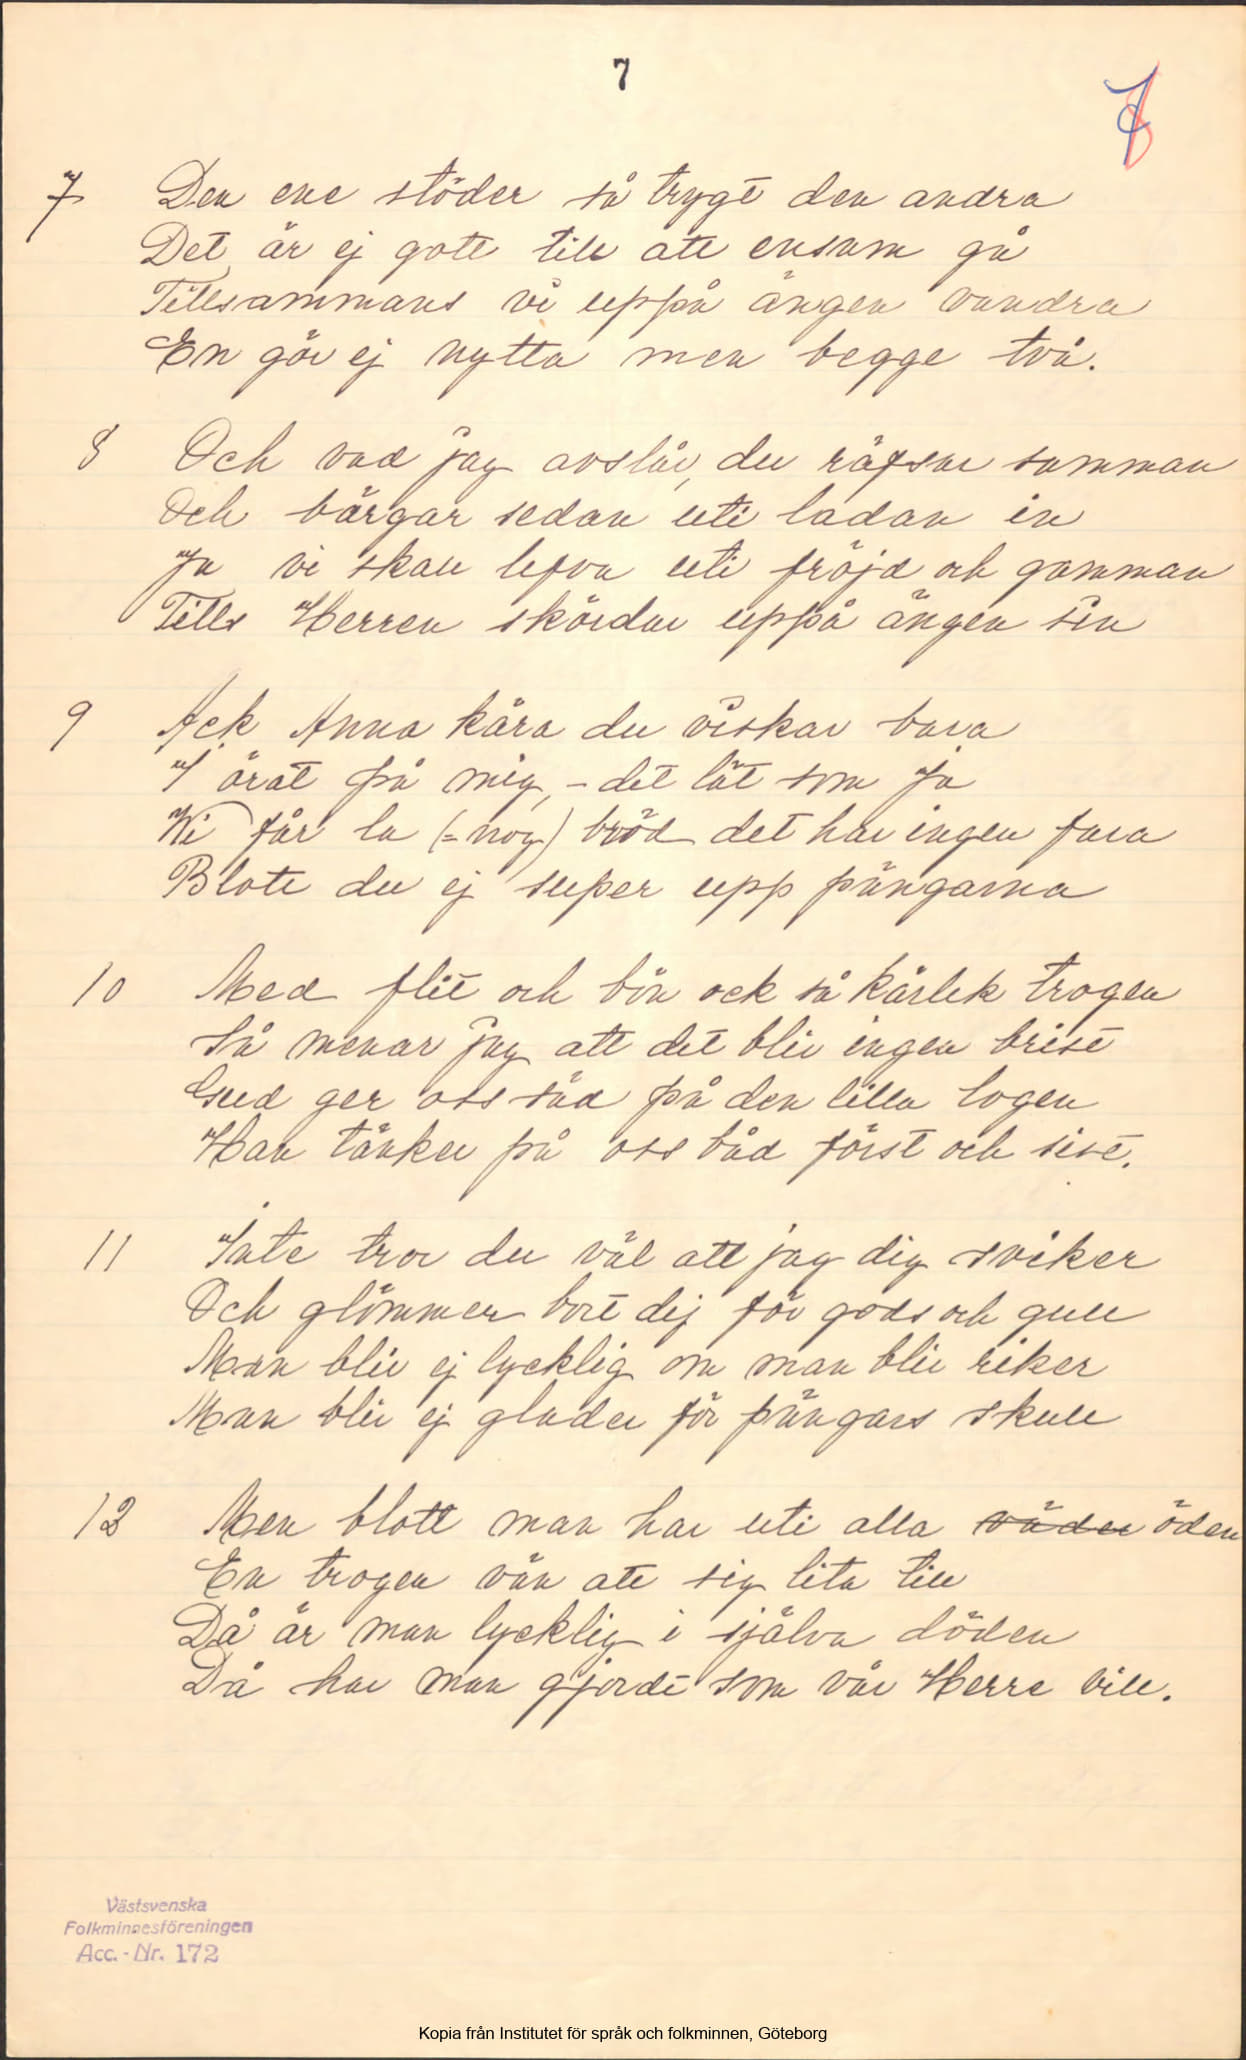 7
7
7 Den ene stöder så trygt den andra
Det är ej gott till att ensam gå
Tillsammans vi uppå ängen vandra
En gör ej nytta men begge två.
8 Och vad jag avslår, du räfsar samman
Och bärgar sedan uti ladan in
Ja vi skall lefva uti fröjd och gamman
Tills Herren skördar uppå ängen sin
9 Ack Anna kära du viskar bara
I örat på mig, - det lät som ja
Wi får la (= nog) bröd det har ingen fara
Blott du ej super upp pängarna
10 Med flit och bön ock så kärlek trogen
Så menar jag att det blir ingen brist
Gud ger oss säd på den lilla logen
Han tänker på oss båd först och sist.
11 Inte tror du väl att jag dig sviker
Och glömmer bort dij för gods och gull
Man blir ej lycklig om man blir riker
Man blir ej glader för pängars skull
12 Men blott man har uti alla väder öden
En trogen vän att sig lita till
Då är man lycklig i själva döden
Då har man gjordt som vår Herre vill.
Västsvenska
Folkminnesföreningen
Acc.-Nr. 172
Kopia från Institutet för språk och folkminnen, Göteborg